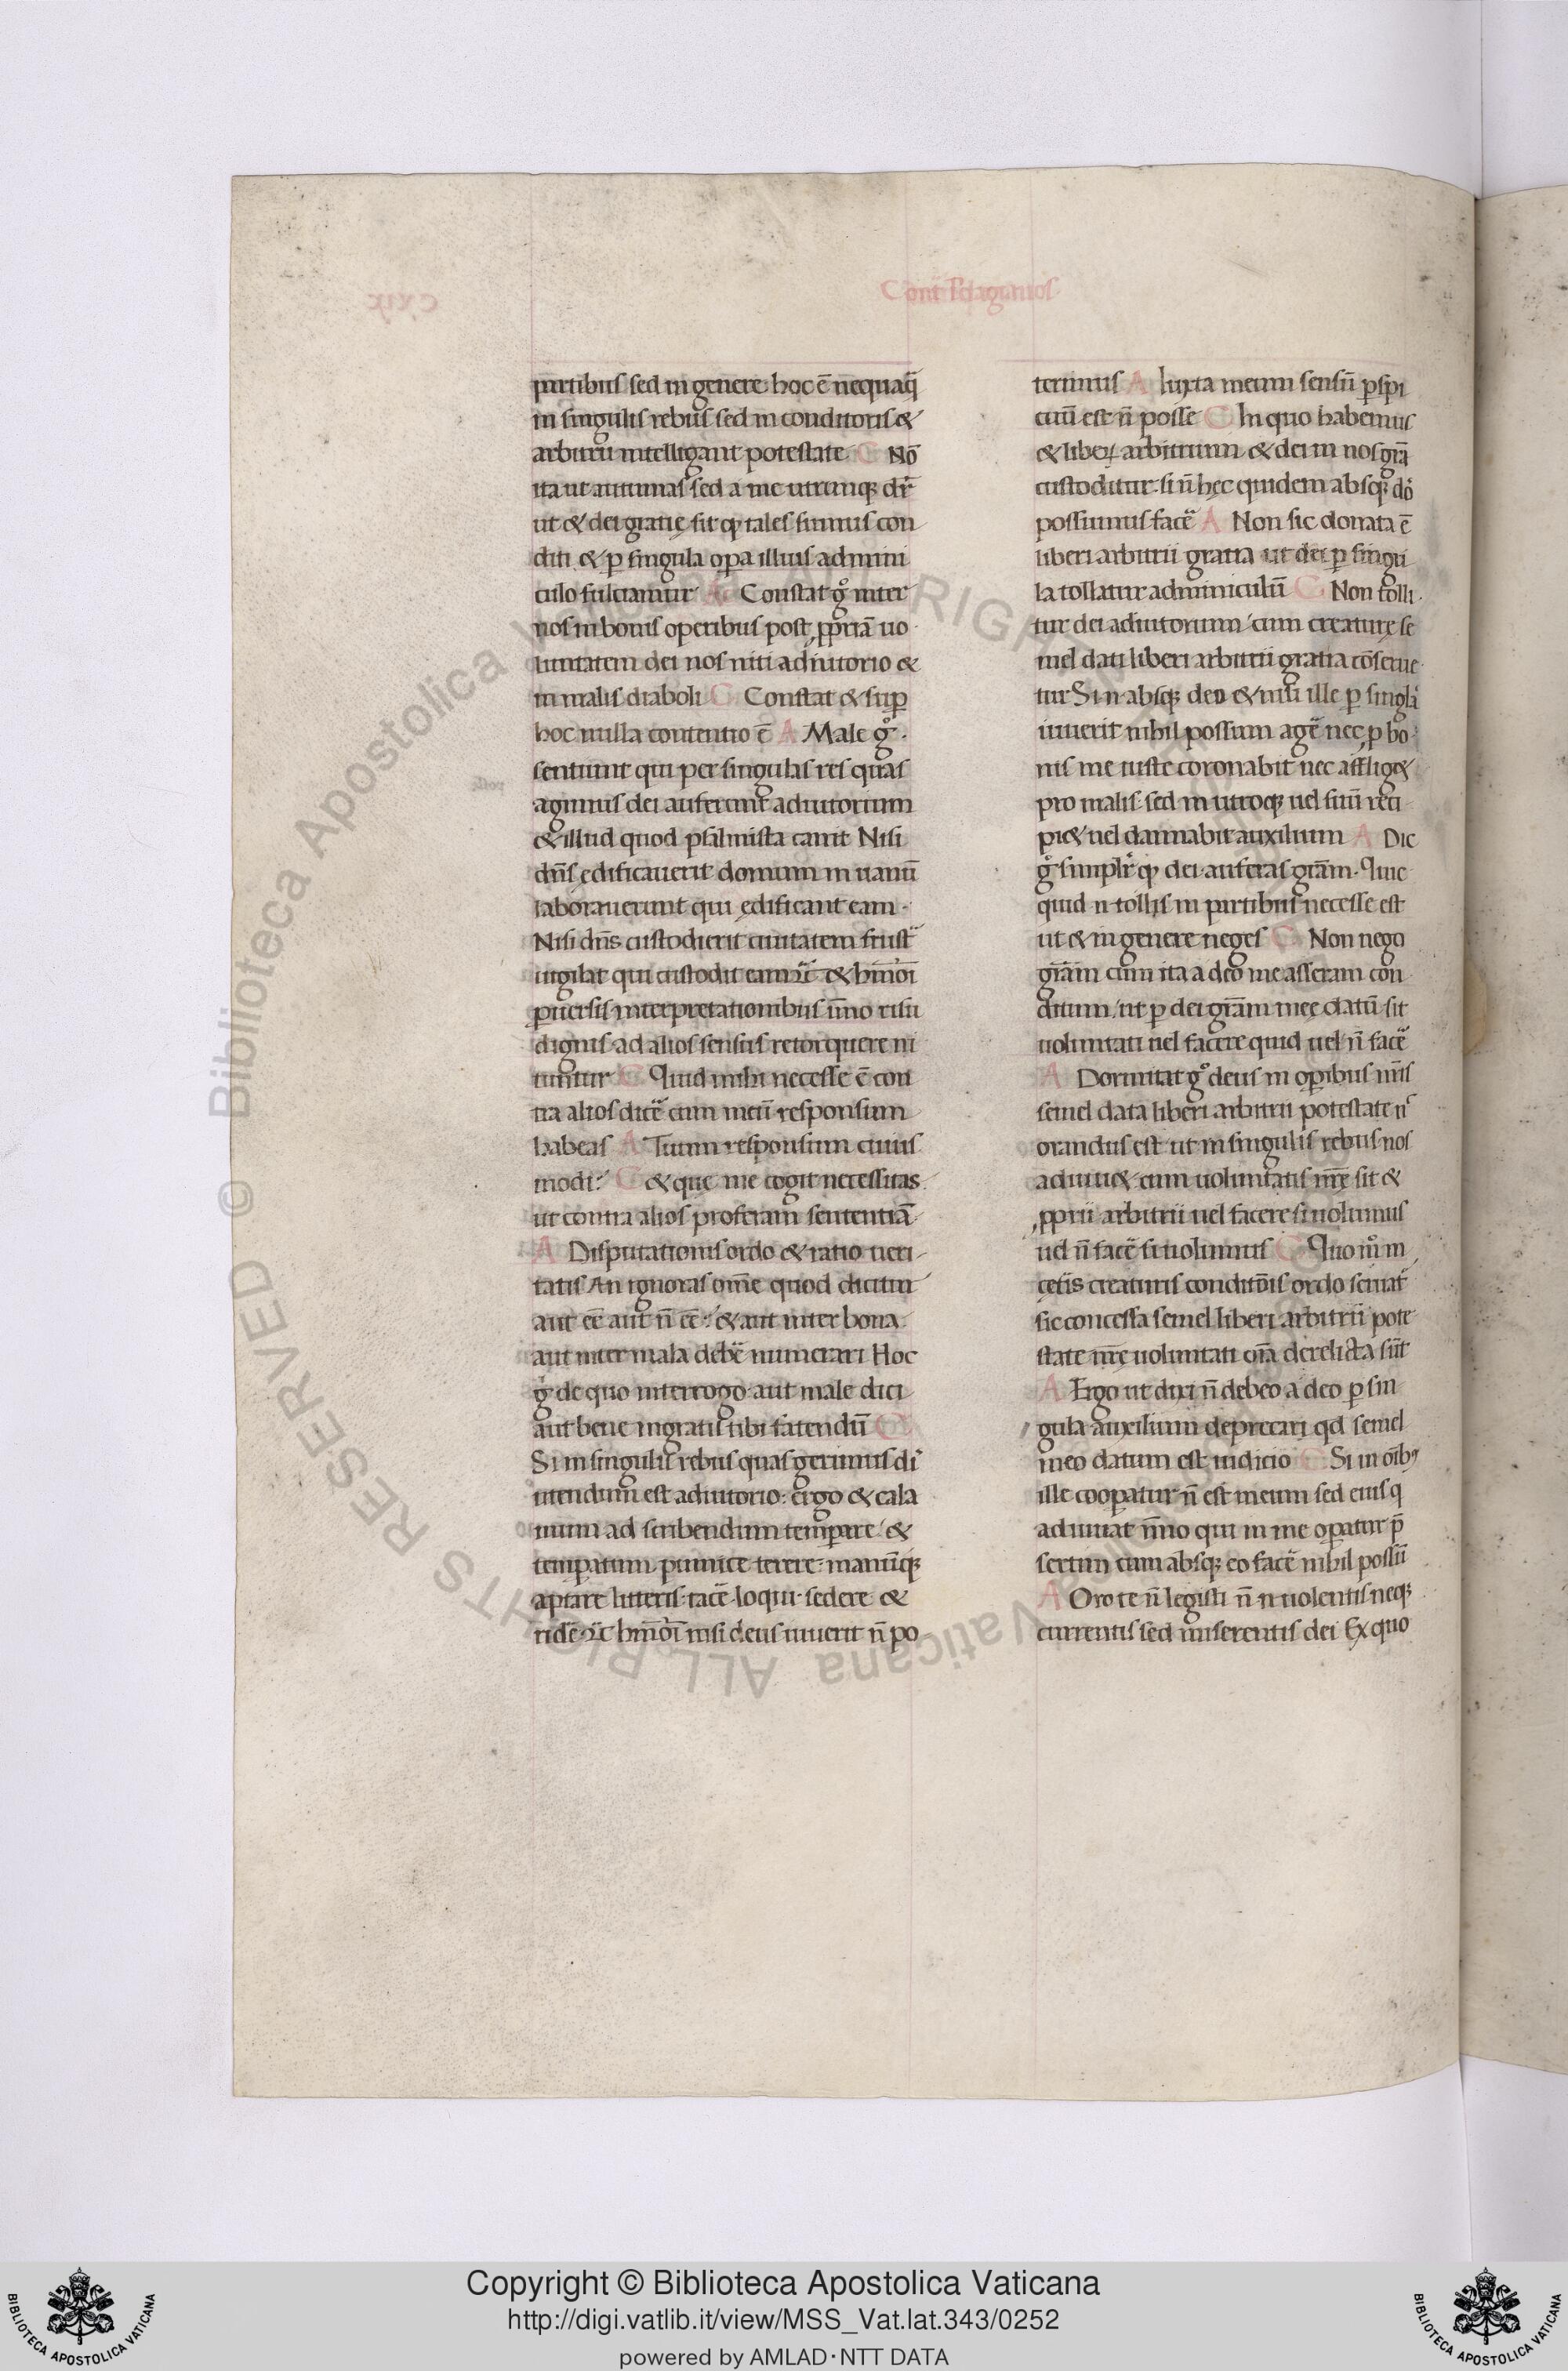 Cont̃ Pelagianos
partibus sed in genere. hoc ẽ nequaq̃
in singulis rebus sed in conditoris &
arbitrii intelligant potestate. C Nō
ita ut autumas sed a me utrunq; dr̃
ut & dei gratię sit qꝫ tales sumus con
diti. & ꝑ singula oꝑa illius admini
culo fulciamur A Constat gͦ inter
nos in bonis operibus post ꝓpriā uo
luntatem dei nos niti adiutorio &
in malis diaboli C Constat & suꝑ
hoc nulla contentio ẽ A Male gͦ.
sentiunt qui per singulas res quas
agimus dei auferunt adiutorium
& illud quod psalmista canit Nisi
dñs ędificauerit domum in uanũ
laborauerunt qui ędificant eam.
Nisi dñs custodierit ciuitatem frust̃
uigilat qui custodit eam ⁊c̃ & hm̃oi
ꝑuersis interpretationibus im̃o risu
dignis ad alios sensus retorquere ni
tuntur C Quid mihi necesse ẽ con
tra alios dicẽ cum meũ responsum
habeas A Tuum responsum cuius
modi? C & que me cogit necessitas
ut contra alios proferam sententiã.
A Disputationis ordo & ratio ueri
tatis An ignoras om̃e quod dicitur
aut eẽ aut ñ eẽ? & aut inter bona
aut inter mala debẽ numerari Hoc
g̊ de quo interrogo aut male dici
aut bene ingratis tibi fatendũ C
Si in singulis rebus quas gerimus di
utendum est adiutorio: ergo & cala
mum ad scribendum temꝑare. &
temꝑatum pumice terere. manũq;
aptare litteris. tacẽ. loqui. sedere &
ridẽ. ⁊c̃ hm̃oi nisi deus iuuerit ñ po
terimus A Iuxta meum sensũ ꝑspi
cuũ est ñ posse C In quo habemus
& liberꝝ arbitrium & dei in nos grã
custoditur. si ñ hęc quidem absq; dõ
possumus facẽ A Non sic donata ẽ
liberi arbitrii gratia ut dei ꝑ singu
la tollatur adminiculũ C Non tolli
tur dei adiutorium cum creaturę se
mel dati liberi arbitrii gratia cõserue
tur Si n absq; deo & nisi ille ꝑ singla
iuuerit nihil possum agẽ nec ꝓ bo
nis me iuste coronabit nec afflig&
pro malis. sed in utroq; uel suũ reci
pi& uel damnabit auxilium A Dic
gͦ simplr̃ qꝫ dei auferas grãm. Quic
quid n tollis in partibus necesse est
ut & in genere neges C Non nego
grãm cum ita a deo me asseram con
ditum. ut ꝑ dei grãm meę datũ sit
uoluntati uel facere quid uel ñ facẽ
A Dormitat gͦ deus in oꝑibus nr̃is
semel data liberi arbitrii potestate n̄
orandus est ut in singulis rebus nos
adiuu& cum uoluntatis nr̃ę sit &
ꝓprii arbitrii uel facere si uolumus
uel ñ facẽ si nolumus C Quo m̊ in
cet̃is creaturis conditõis ordo seruat̃
sic concessa semel liberi arbitrii pote
state nr̃ę uoluntati oĩa derelicta sũt
A Ergo ut dixi ñ debeo a deo ꝑ sin
gula auxilium deprecari qd semel
meo datum est iudicio C Si in oĩbꝫ
ille cooꝑatur ñ est meum sed eius q
adiuuat im̃o qui in me oꝑatur p̃
sertim cum absq; eo facẽ nihil possũ
A Oro te ñ legisti ñ n uolentis neq;
currentis sed miserentis dei Ex quo
Copyright © Biblioteca Apostolica Vaticana
http://digi.vatlib.it/view/MSS_Vat.lat.343/0252
powered by AMLAD·NTT DATA